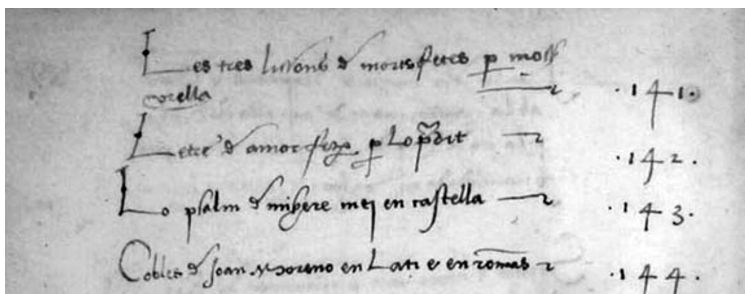 Les tres lisons d morts fetes p moss
corella .141.
Letres d amor fetes p Lo pdit .142.
Lo psalm d misere mei en castella .143.
Cobles d Joan Moreno en Lati e en romas .144.